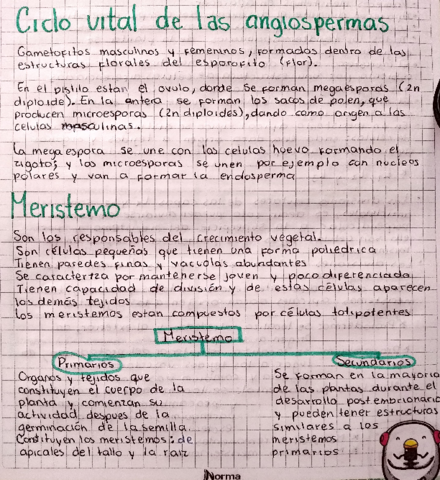 Ciclo vital de las angiospermas
Gametofitos masculinos y femeninos, formados dentro de las
estructuras florales del esporofito (flor).
En el pistilo estan el ovulo, donde se forman megaesporas (2n
diploide). En la antera se forman los sacos de polen, que
producen microesporas (2n diploides), dando como origen a las
celulas masculinas.
La megaespora se une con las celulas huevo formando el
zigoto, y las microesporas se unen por ejemplo con nucleos
polares y van a formar la endosperma
Meristemo
Son los responsables del crecimiento vegetal.
Son células pequeñas que tienen una forma poliedrica
Tienen paredes finas y vacuolas abundantes
Se caracteriza por mantenerse joven y poco diferenciada
Tienen capacidad de división y de estas células aparecen
los demás tejidos
Los meristemos estan compuestos por células totipotentes
Meristemo
Primarios
Organos y tejidos que
constituyen el cuerpo de la
planta y comienzan su
actividad despues de la
germinación de la semilla.
Constituyen los meristemos: de
apicales del tallo y la raiz
Secundarios
Se forman en la mayoria
de las plantas durante el
desarrollo postembrionario
y pueden tener estructuras
similares a los
meristemos
primarios
Norma